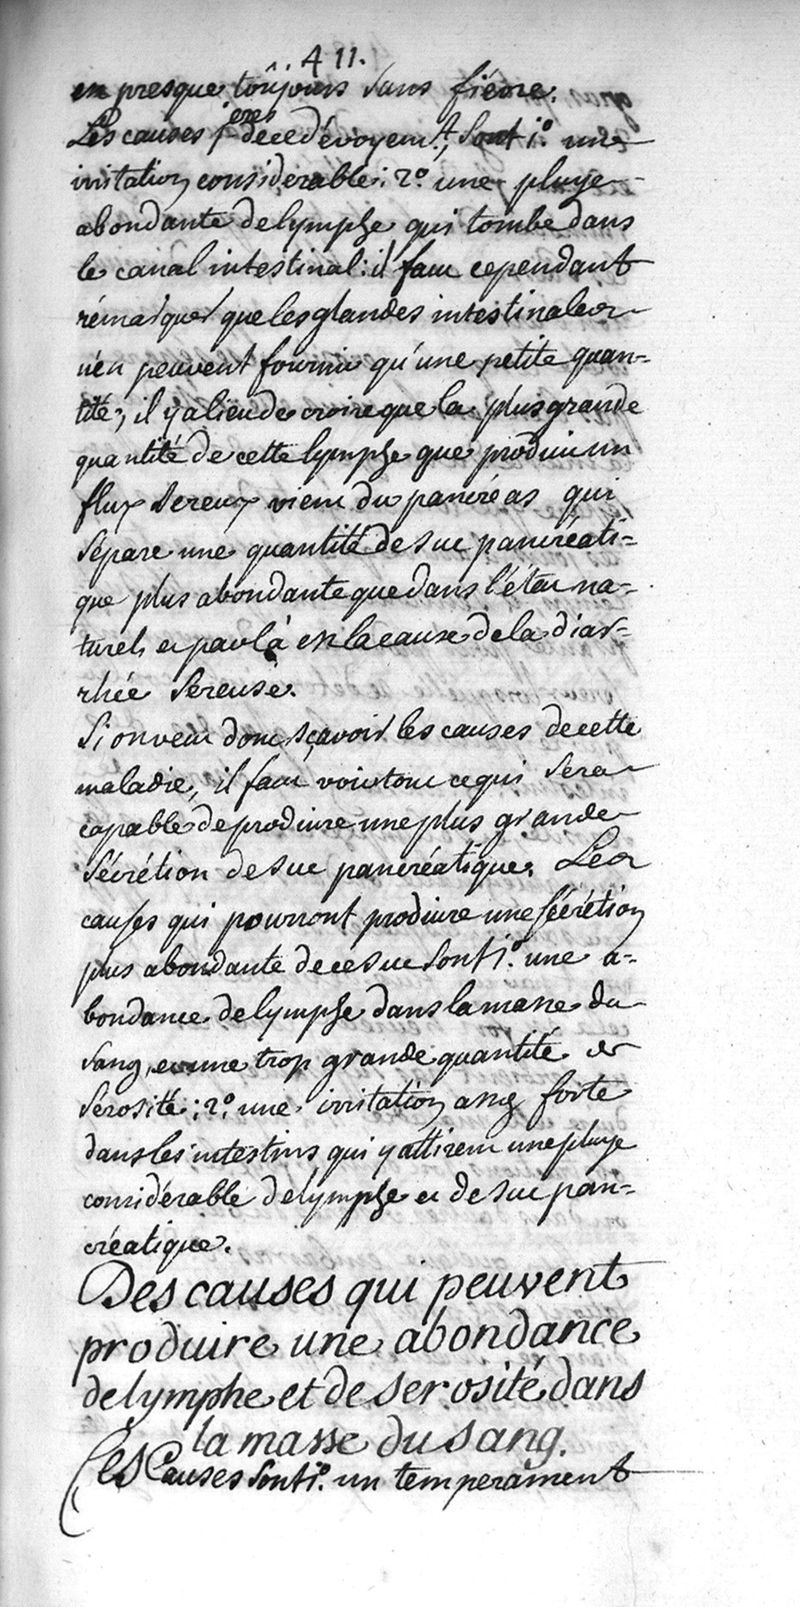 411.
est presque toûjours sans fiévre.
Les causes p.eres de ce dévoyem.t, sont 1.o une
irritation considerable: 2.o une pluye
abondante de lymphe qui tombe dans
le canal intestinal: il faut cependant
rémarquer que les glandes intestinales
n'en peuvent fournir qu'une petite quan=
tité; il y a lieu de croire que la plus grande
quantité de cette lymphe que produit un
flux sereux vient du pancréas qui
sépare une quantité de suc pancréati=
que plus abondante que dans l'état na=
turel, et par là est la cause de la diar=
rhée sereuse.
Si on veut donc sçavoir les causes de cette
maladie, il faut voir tout ce qui sera
capable de produire une plus grande
sécrétion de suc pancréatique. Les
causes qui pourront produire une sécrétion
plus abondante de ce suc sont 1.o une a=
bondance de lymphe dans la masse du
sang, et une trop grande quantité de
sérosité; 2.o une irritation assez forte
dans les intestins qui y attirent une pluye
considérable de lymphe et de suc pan=
créatique.
Des causes qui peuvent
produire une abondance
de lymphe et de serosité dans
la masse du sang.
Ces Causes sont 1.o un temperament